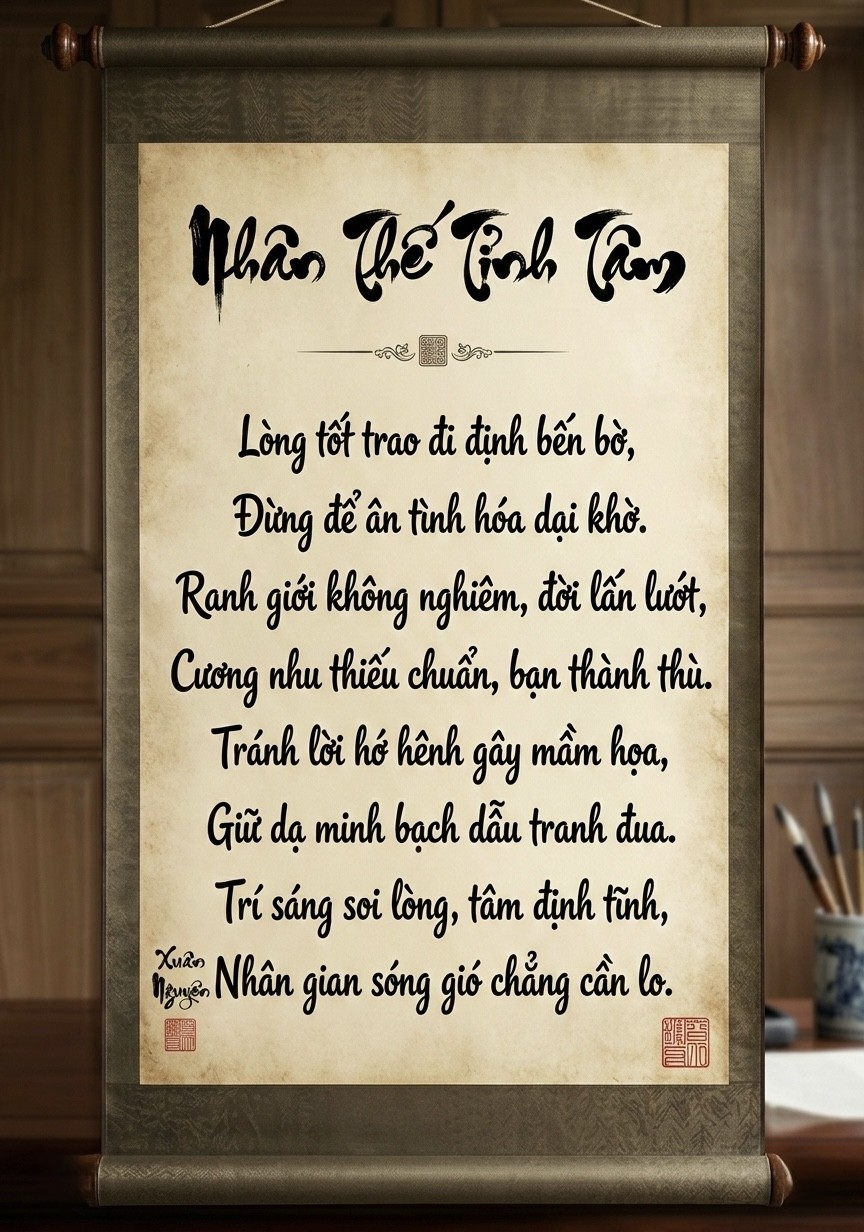 Nhân Thế Tỉnh Tâm
Lòng tốt trao đi định bến bờ,
Đừng để ân tình hóa dại khờ.
Ranh giới không nghiêm, đời lấn lướt,
Cương nhu thiếu chuẩn, bạn thành thù.
Tránh lời hớ hênh gây mầm họa,
Giữ dạ minh bạch dẫu tranh đua.
Trí sáng soi lòng, tâm định tĩnh,
Nhân gian sóng gió chẳng cần lo.
Xuân
Nguyên